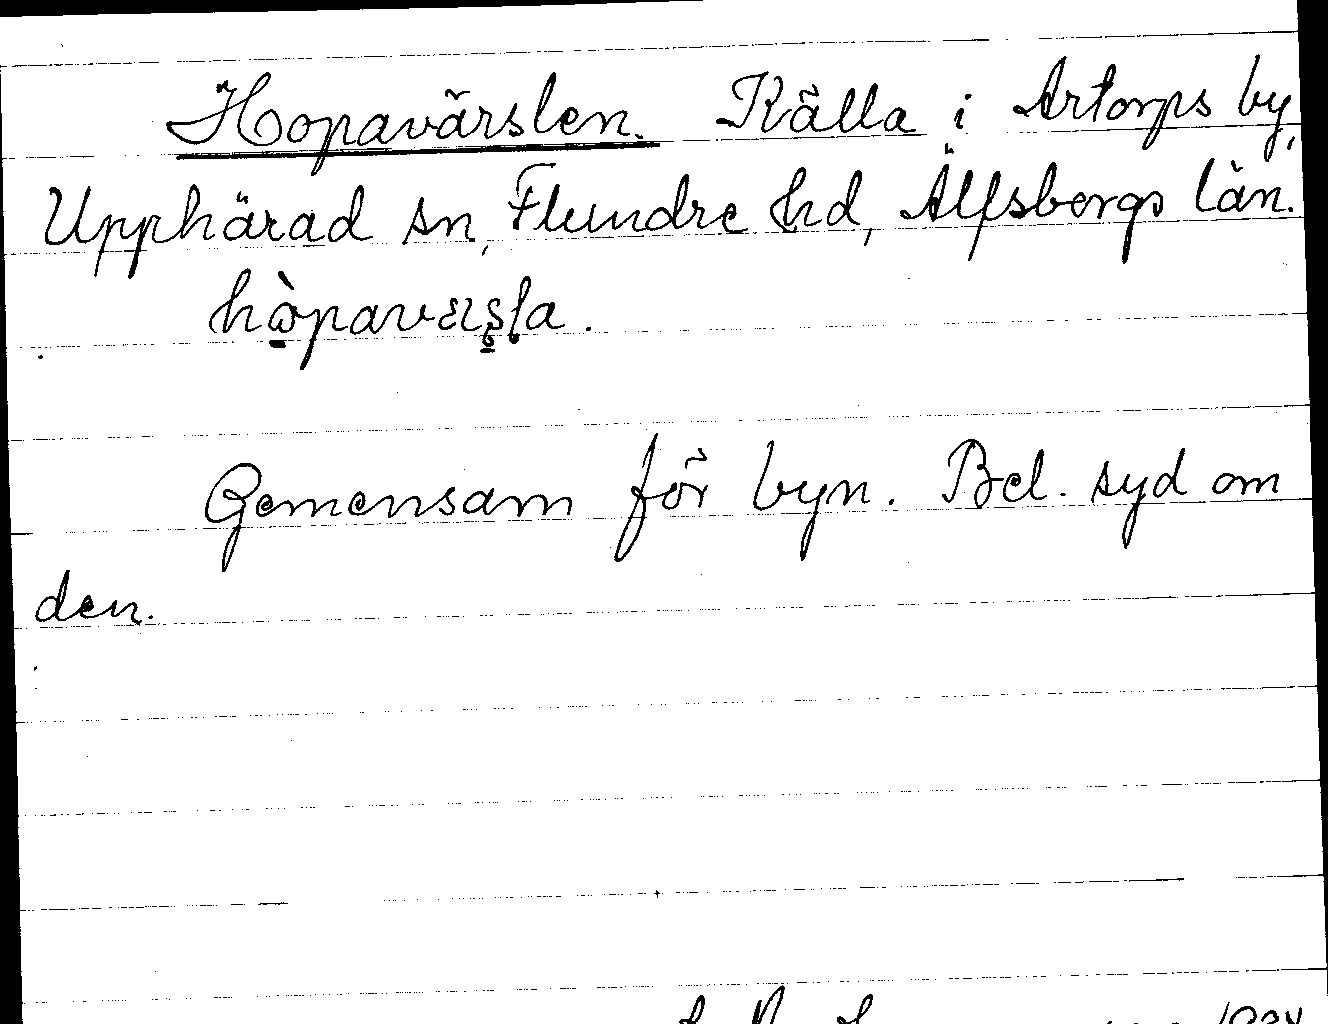 Hopavärslen. Källa i Artorps by,
Upphärad sn, Flundre hd, Älfsborgs län.
hɷ̀pavæʂla.
Gemensam för byn. Bel. syd om
den.